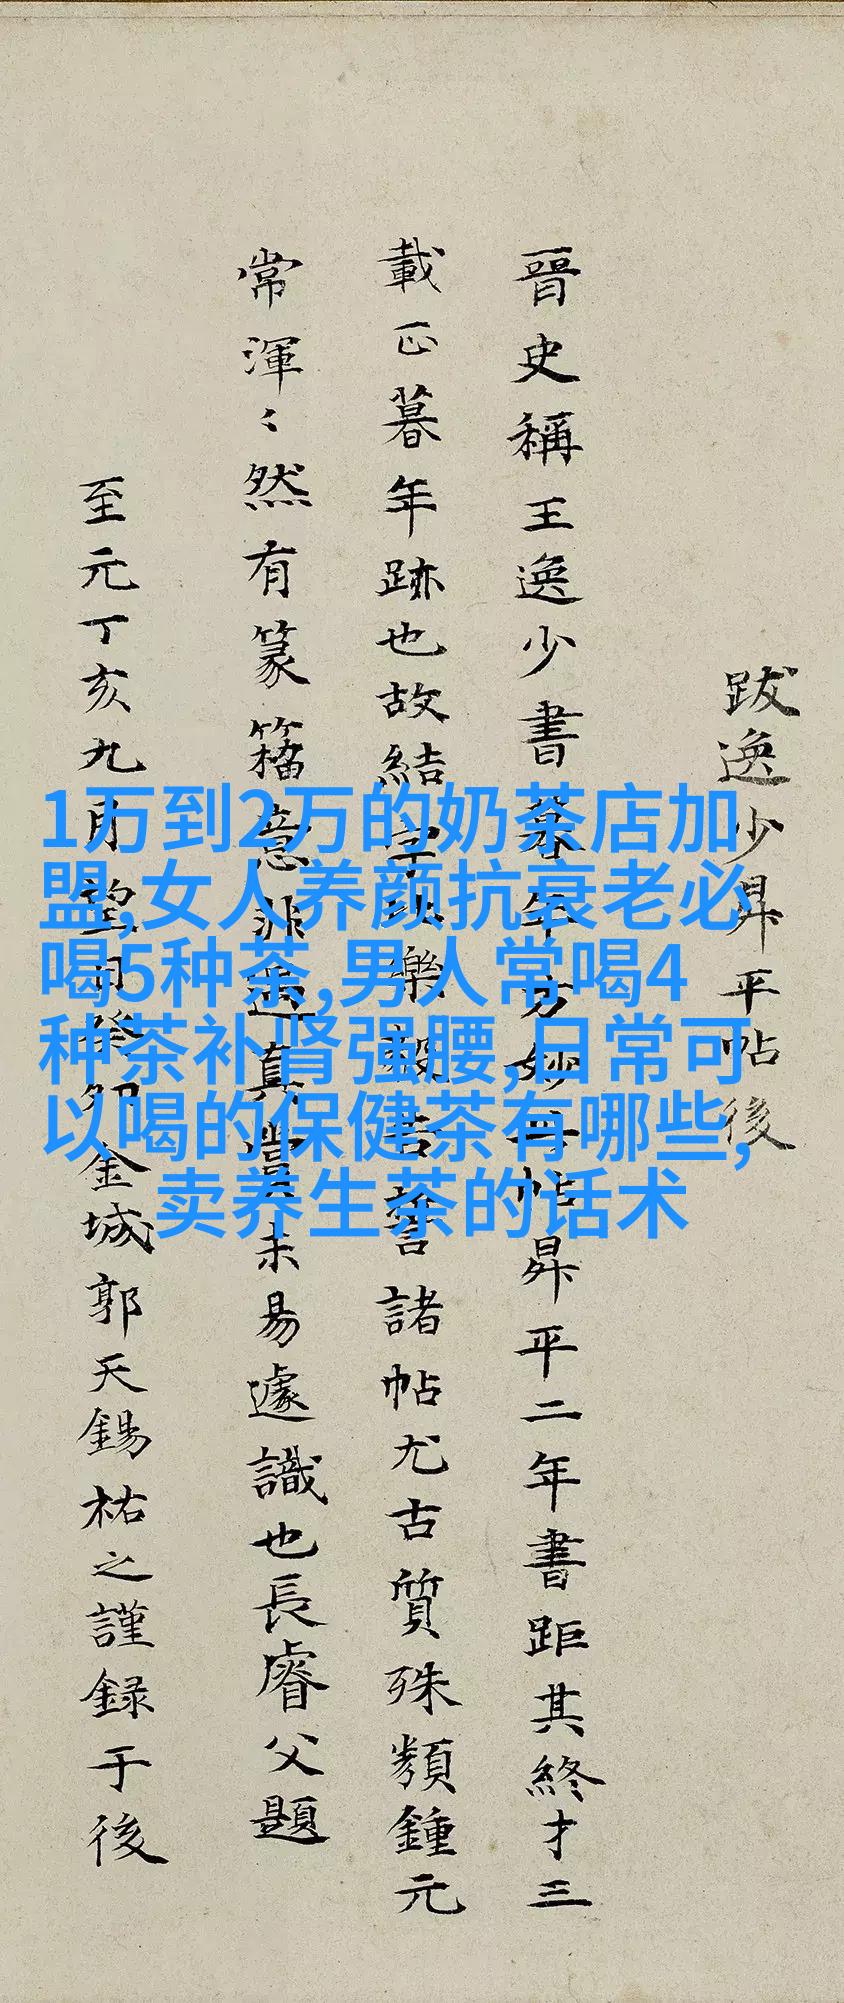 跋逸少昇平帖後
晉史稱王逸少書暮年方妙此帖昇平二年書距其終才三
載正暮年跡也故結字與樂毅告誓諸帖尤古質殊類鍾元
常渾〻然有篆籀意非遇真賞未易遽識也長睿父題
至元丁亥九月望日癸卯金城郭天錫祐之謹録于後
1万到2万的奶茶店加
盟,女人养颜抗衰老必
喝5种茶,男人常喝4
种茶补肾强腰,日常可
以喝的保健茶有哪些,
卖养生茶的话术